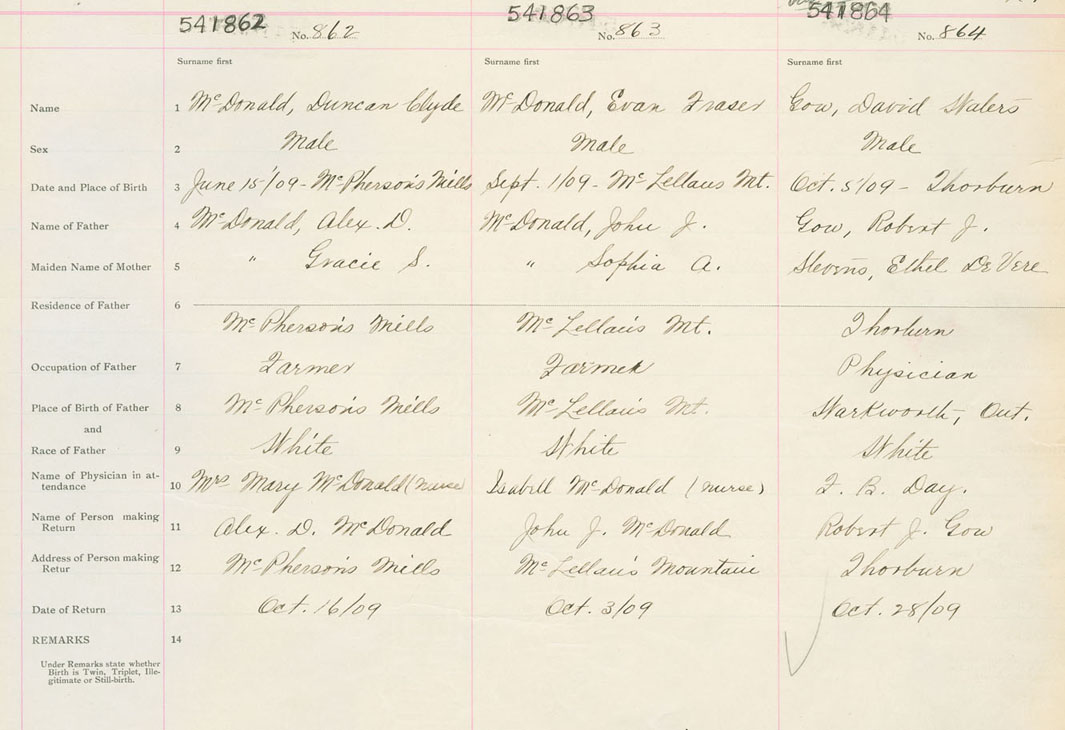 541862 No. 862 541863 No. 863 541864 No. 864
Surname first Surname first Surname first
Name 1 McDonald, Duncan Clyde McDonald, Evan Fraser Gow, David Waters
Sex 2 Male Male Male
Date and Place of Birth 3 June 15/09 - McPherson's Mills Sept. 1/09 - McLellan's Mt. Oct. 5/09 - Thorburn
Name of Father 4 McDonald, Alex. D. McDonald, John J. Gow, Robert J.
Maiden Name of Mother 5 " Gracie S. " Sophia A. Stevens, Ethel DeVere
Residence of Father 6
McPherson's Mills McLellan's Mt. Thorburn
Occupation of Father 7 Farmer Farmer Physician
Place of Birth of Father 8 McPherson's Mills McLellan's Mt. Warkworth, Ont.
and
Race of Father 9 White White White
Name of Physician in at-
tendance 10 Mrs Mary McDonald (nurse Isabell McDonald (nurse) F. B. Day.
Name of Person making
Return 11 Alex. D. McDonald John J. McDonald Robert J. Gow
Address of Person making
Retur 12 McPherson's Mills McLellan's Mountain Thorburn
Date of Return 13 Oct. 16/09 Oct. 3/09 Oct. 28/09
REMARKS 14
Under Remarks state whether
Birth is Twin, Triplet, Ille-
gitimate or Still-birth.